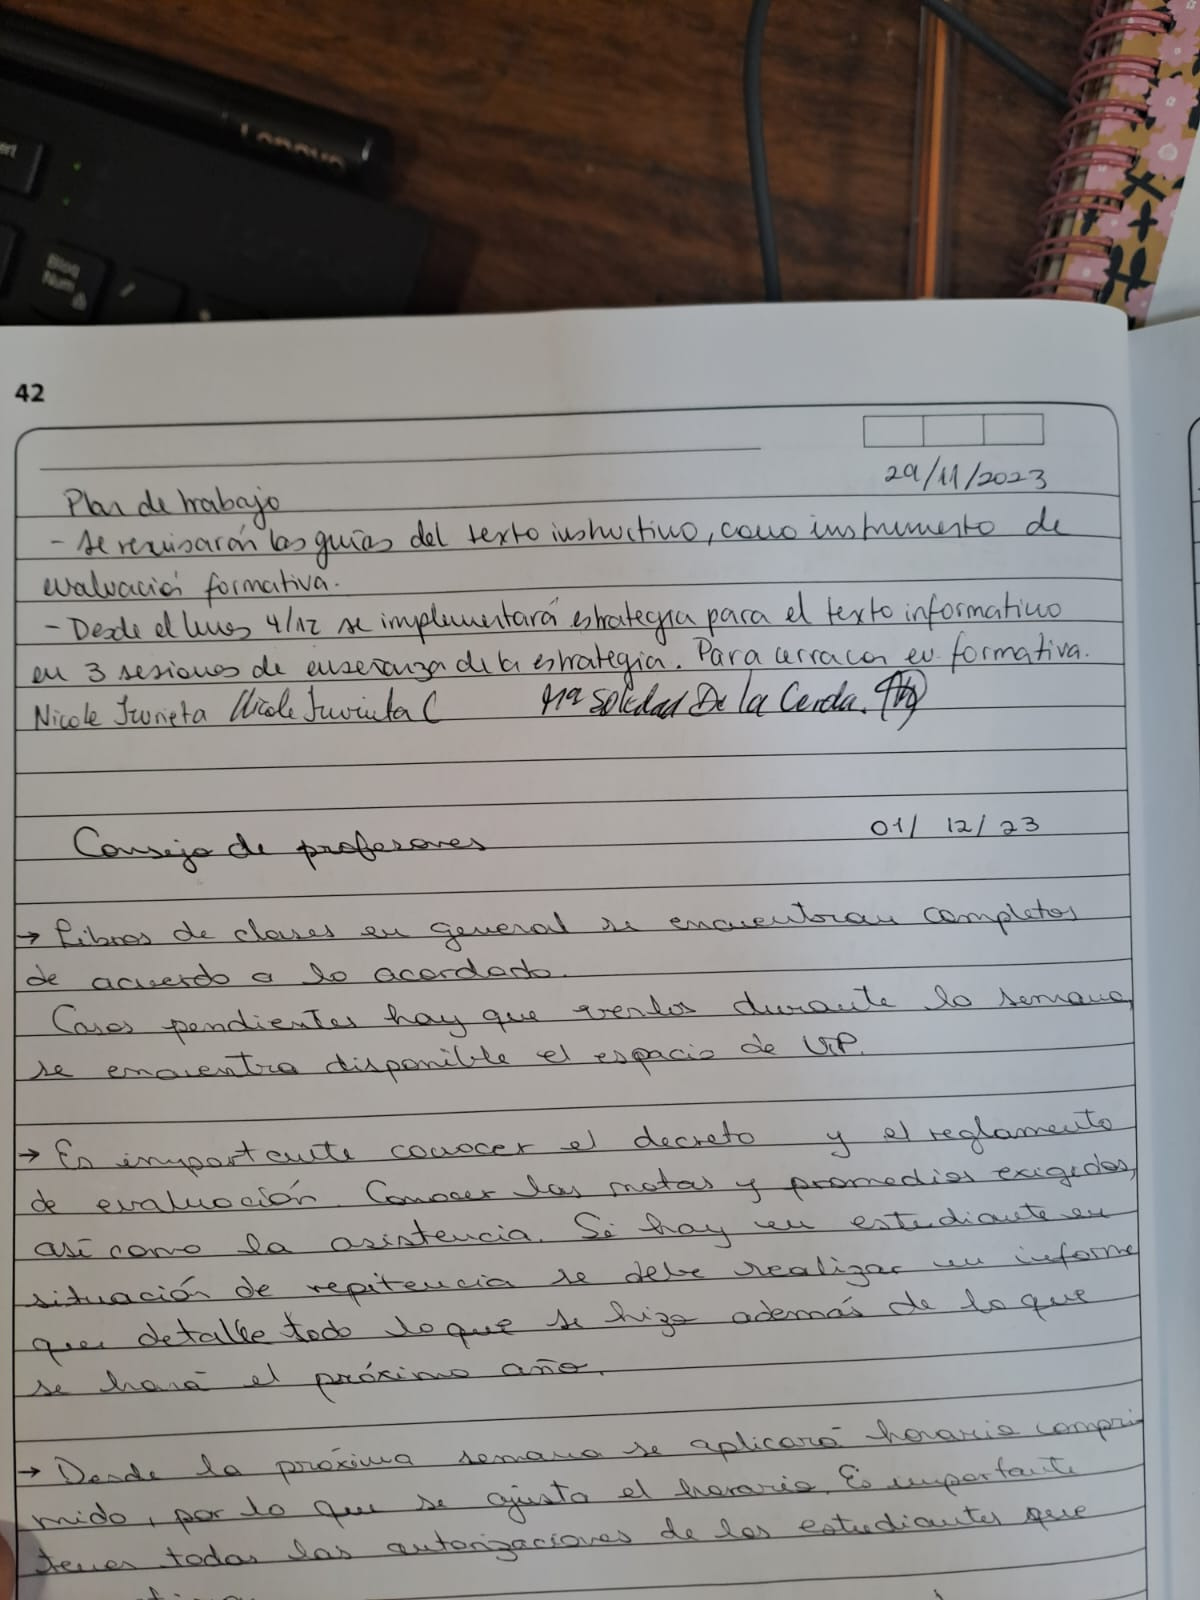 Lenovo
Bloq
Num
42
29/11/2023
Plan de trabajo
- Se revisarán las guías del texto instructivo, como instrumento de
evaluación formativa.
- Desde el lunes 4/12 se implementará estrategia para el texto informativo
en 3 sesiones de enseñanza de la estrategia. Para cerrar con ev. formativa.
Nicole Iturrieta Nicole Iturrieta C Mª Soledad De La Cerda.
Consejo de profesores 01/ 12/ 23
→ Libros de clases en general se encuentran completos
de acuerdo a lo acordado.
Casos pendientes hay que verlos durante la semana,
se encuentra disponible el espacio de UTP.
→ Es importante conocer el decreto y el reglamento
de evaluación. Conocer las notas y promedios exigidos,
así como la asistencia. Si hay un estudiante en
situación de repitencia se debe realizar un informe
que detalle todo lo que se hizo además de lo que
se hará el próximo año.
→ Desde la próxima semana se aplicará horario compri
mido, por lo que se ajusta el horario. Es importante
tener todas las autorizaciones de los estudiantes que